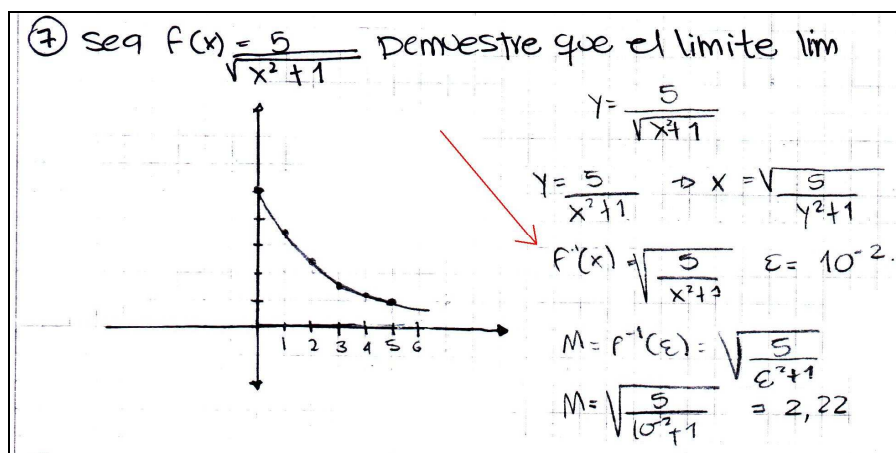 ⑦ Sea f(x) = 5/√(x² + 1) Demuestre que el limite lim
Y = 5/√(x²+1)
Y = 5/(x²+1) → x = √(5/(y²+1))
f⁻¹(x) = √(5/(x²+1)) ε = 10⁻².
M = f⁻¹(ε) = √(5/(ε²+1))
M = √(5/(10⁻²+1)) = 2,22
1 2 3 4 5 6